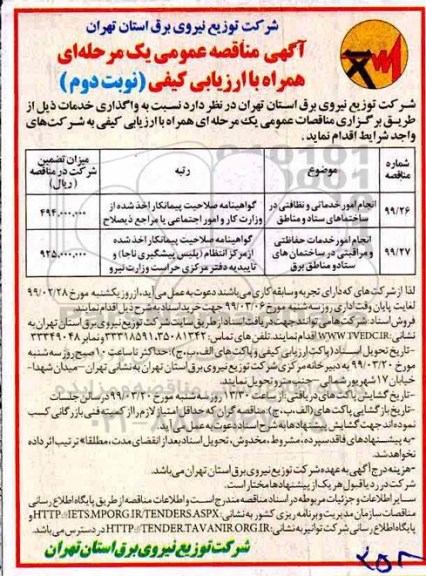 شرکت توزیع نیروی برق استان تهران
آگهی مناقصه عمومی یک مرحله‌ای
همراه با ارزیابی کیفی (نوبت دوم)
شرکت توزیع نیروی برق استان تهران در نظر دارد نسبت به واگذاری خدمات ذیل از
طریق برگزاری مناقصات عمومی یک مرحله ای همراه با ارزیابی کیفی به شرکت‌های
واجد شرایط اقدام نماید.
شماره مناقصه موضوع رتبه میزان تضمین شرکت در مناقصه (ریال)
۹۹/۲۶ انجام امور خدماتی و نظافتی در ساختمانهای ستاد و مناطق گواهینامه صلاحیت پیمانکار اخذ شده از وزارت کار و امور اجتماعی یا مراجع ذیصلاح ۴۹۴,۰۰۰,۰۰۰
۹۹/۲۷ انجام امور خدمات حفاظتی و مراقبتی در ساختمان های ستاد و مناطق برق گواهینامه صلاحیت پیمانکار اخذ شده از مرکز انتظام (پلیس پیشگیری ناجا) و تاییدیه دفتر مرکزی حراست وزارت نیرو ۹۲۵,۰۰۰,۰۰۰
لذا از شرکت های که دارای تجربه و سابقه کاری می‌باشند دعوت به عمل می‌آید، از روز یکشنبه مورخ ۹۹/۰۲/۲۸
لغایت پایان وقت اداری روز سه شنبه مورخ ۹۹/۰۳/۰۶ جهت خرید اسناد به شرح ذیل اقدام نمایند.
فروش اسناد: شرکت‌ها می‌توانند جهت دریافت اسناد از طریق سایت شرکت توزیع نیروی برق استان تهران به
نشانی: WWW.TVEDC.IR اقدام نمایند. تلفن های تماس: ۳۵۰۸۱۳۴۲، ۳۳۳۱۸۵۹۱ و نمابر ۳۳۳۴۹۰۴۸
-تاریخ تحویل اسناد (پاکت ارزیابی کیفی و پاکت های الف، ب، ج): حداکثر تا ساعت ۱۰ صبح روز سه شنبه
مورخ ۹۹/۰۳/۲۰ به دبیرخانه مرکزی شرکت توزیع نیروی برق استان تهران به نشانی تهران-میدان شهدا-
خیابان ۱۷ شهریور شمالی-جنب مترو تحویل نمایند.
-تاریخ گشایش پاکت های دریافتی: از ساعت ۱۳/۳۰ روز سه شنبه مورخ ۹۹/۰۳/۲۰ در سالن جلسات
-تاریخ بازگشایی پاکت های (الف، ب، ج): مناقصه گران که حداقل امتیاز لازم را از کمیته فنی بازرگانی کسب
نموده اند جهت گشایش پیشنهادها به شرح اسناد دعوت به عمل می آید.
-به پیشنهادهای فاقد سپرده، مشروط، مخدوش، تحویل اسناد بعد از انقضای مدت، مطلقا" ترتیب اثر داده
نخواهد شد.
-هزینه درج آگهی به عهده شرکت توزیع نیروی برق استان تهران می‌باشد.
شرکت در رد یا قبول هر یک از پیشنهادها مختار است.
سایر اطلاعات و جزئیات مربوطه در اسناد مناقصه مندرج است و اطلاعات مناقصه از طریق پایگاه اطلاع رسانی
مناقصات سازمان مدیریت و برنامه ریزی کشور به نشانی: HTTP://IETS.MPORG.IR/TENDERS.ASPX و
پایگاه اطلاع رسانی شرکت توانیر به نشانی: HTTP://TENDER.TAVANIR.ORG.IR در دسترس می باشد.
شرکت توزیع نیروی برق استان تهران